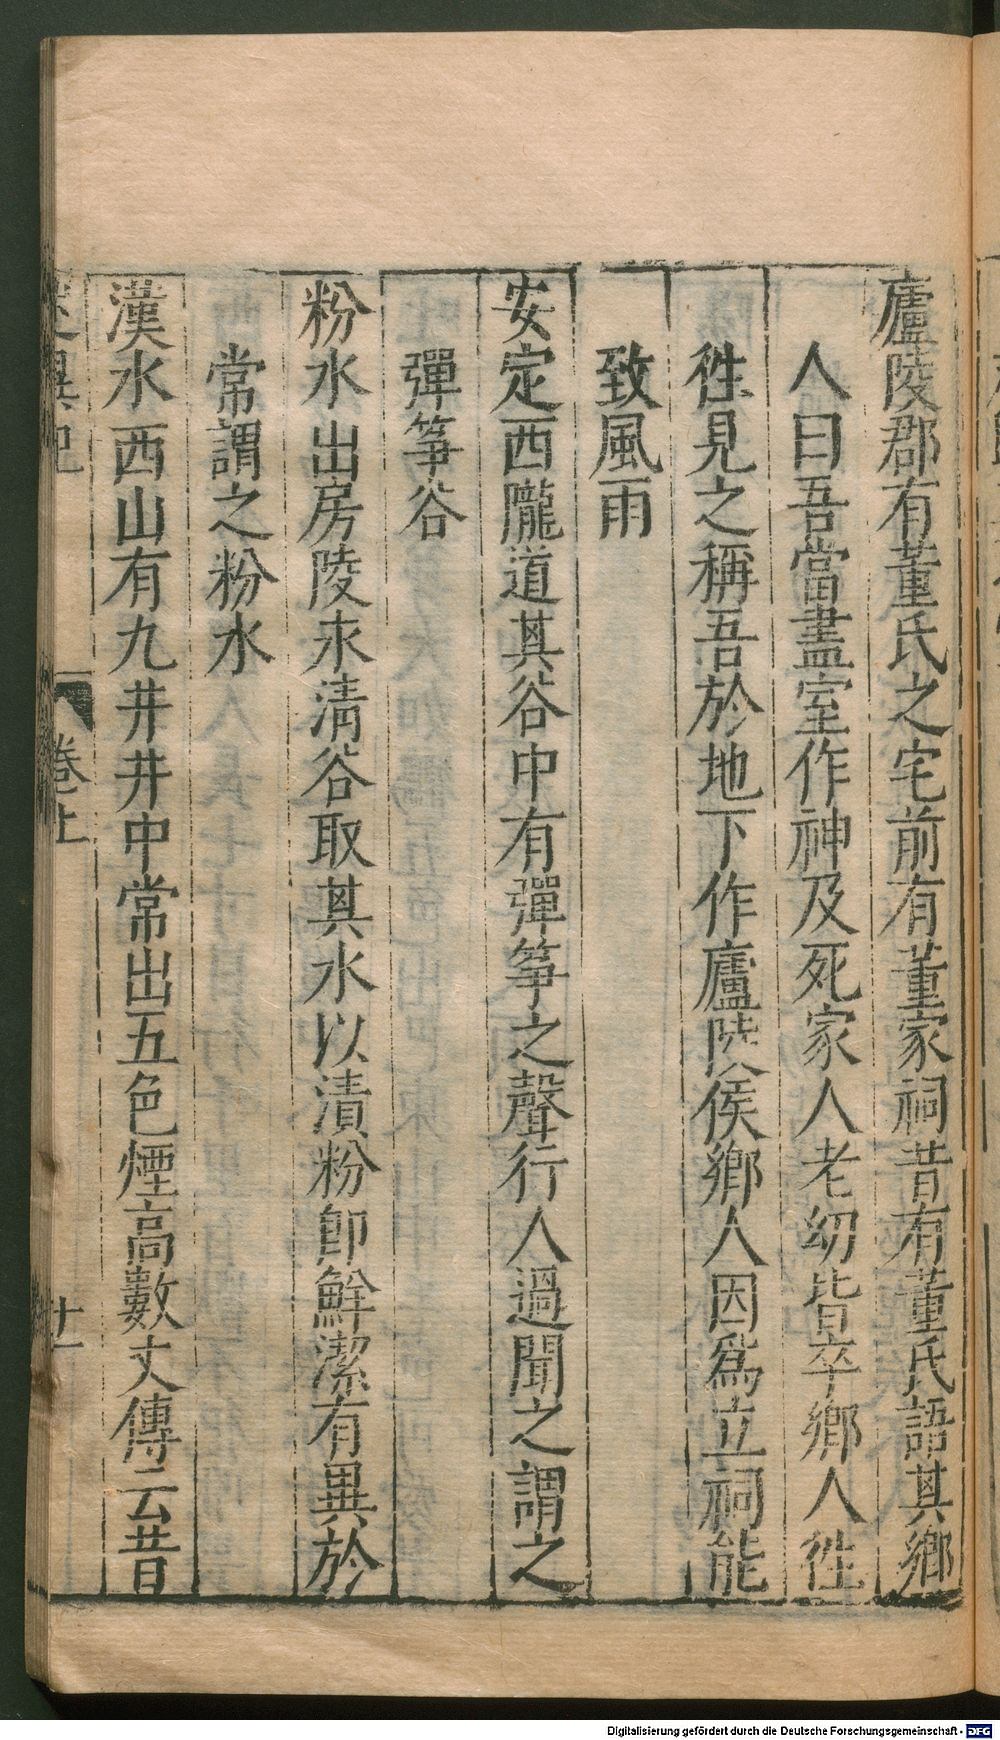 廬陵郡有董氏之宅前有董家祠昔有董氏語其鄉
人曰吾當盡室作神及死家人老幼皆卒鄉人徃
徃見之稱吾於地下作廬陵侯鄉人因爲立祠能
致風雨
安定西隴道其谷中有彈箏之聲行人過聞之謂之
彈箏谷
粉水出房陵永清谷取其水以漬粉即鮮潔有異於
常謂之粉水
漢水西山有九井井中常出五色煙高數丈傳云昔
異記
卷上
十一
Digitalisierung gefördert durch die Deutsche Forschungsgemeinschaft - DFG